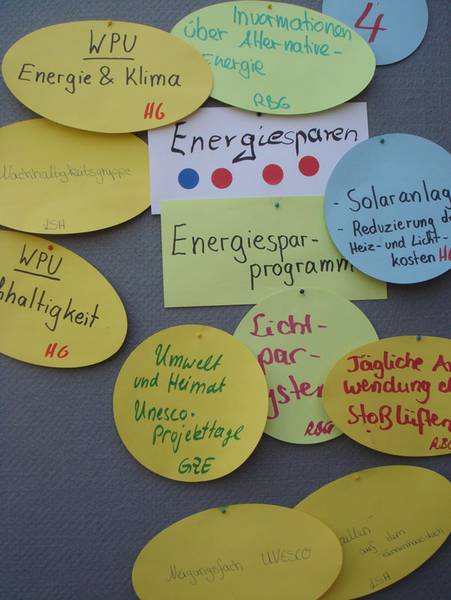 4
WPU
Energie & Klima
HG
Invormationen
über Alternative-
Energie
RBG
Nachhaltigkeitsgruppe
ISH
Energiesparen
- Solaranlag
- Reduzierung d
Heiz- und Licht-
kosten HG
Energiespar-
programm
WPU
hhaltigkeit
HG
Licht-
par-
ysten
RBG
Umwelt
und Heimat
Unesco-
Projekttage
GZE
Tägliche A
wendung
Stoßlüften
RBG
Neigungsfach UNESCO
auf dem
ISH